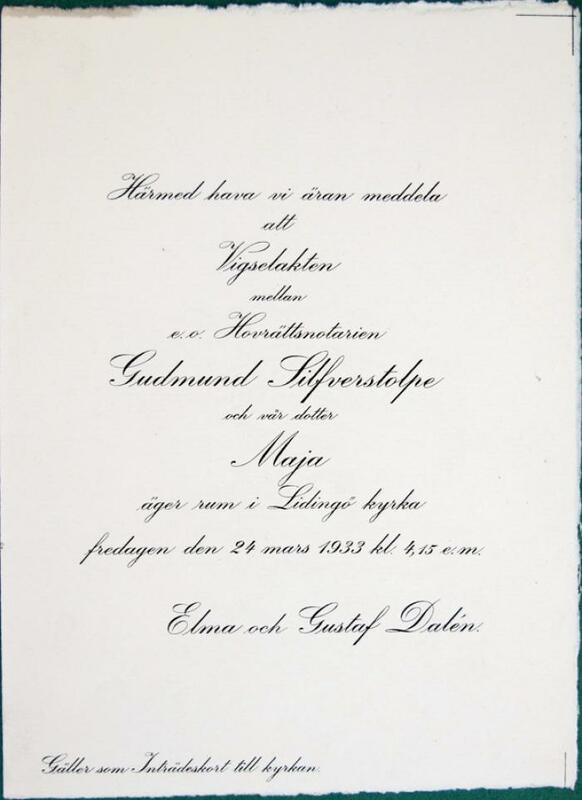 Härmed hava vi äran meddela
att
Vigselakten
mellan
e.o. Hovrättsnotarien
Gudmund Silfverstolpe
och vår dotter
Maja
äger rum i Lidingö kyrka
fredagen den 24 mars 1933 kl. 4,15 e.m.
Elma och Gustaf Dalén.
Gäller som Inträdeskort till kyrkan.